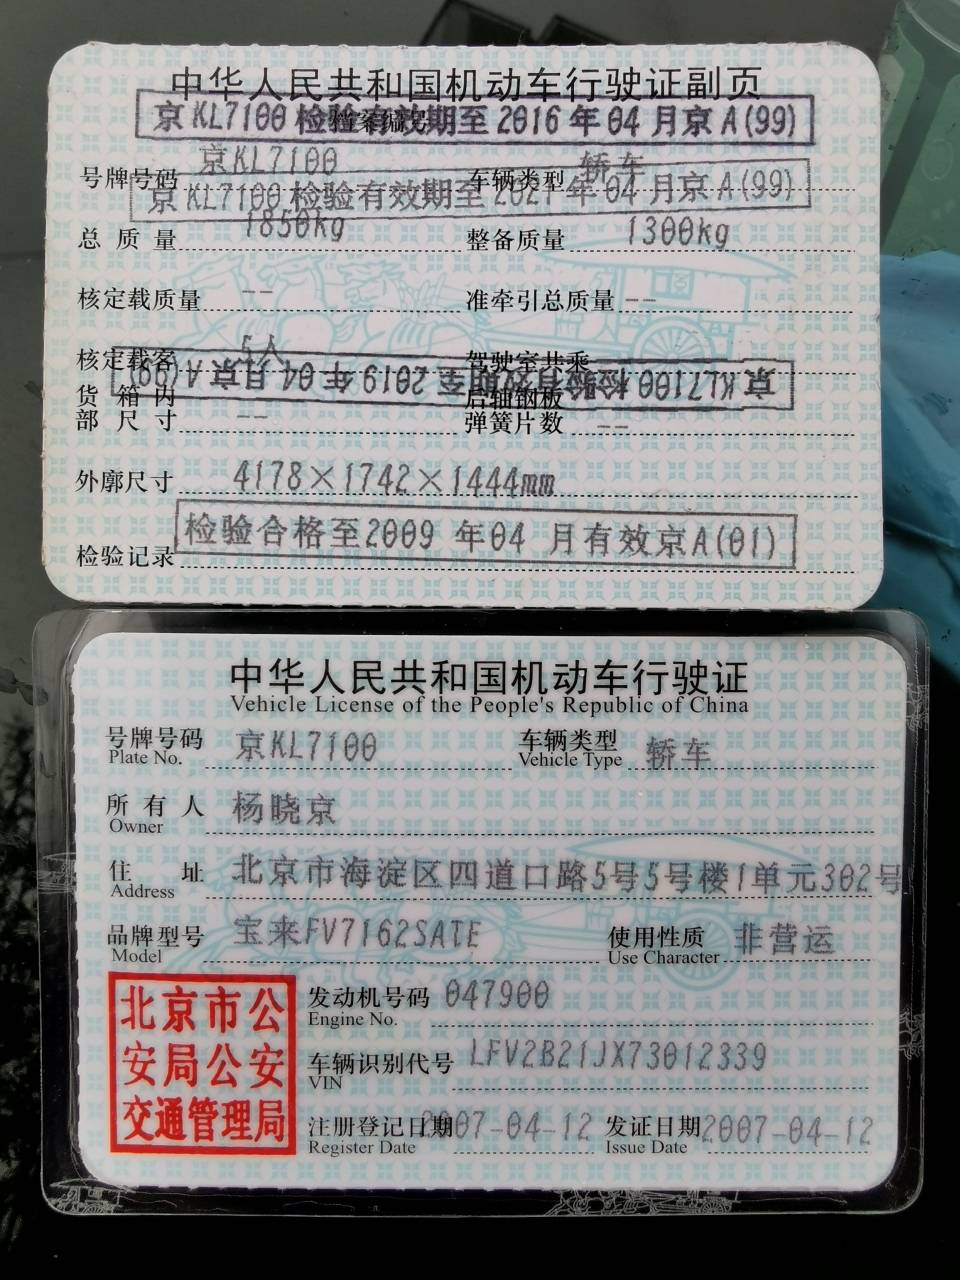 中华人民共和国机动车行驶证副页
京KL7100 检验有效期至 2016 年 04 月京A(99)
号牌号码 京KL7100 车辆类型 轿车
京KL7100 检验有效期至 2021 年 04 月京A(99)
总质量 1850kg 整备质量 1300kg
核定载质量 -- 准牵引总质量 --
核定载客 5人 驾驶室共乘
京KL7100 检验有效期至 2019 年 04 月京A(99)
货箱内部尺寸 -- 后轴钢板弹簧片数 --
外廓尺寸 4178×1742×1444mm
检验记录 检验合格至2009 年04 月有效京A(01)
中华人民共和国机动车行驶证
Vehicle License of the People's Republic of China
号牌号码 京KL7100 车辆类型 轿车
Plate No. Vehicle Type
所有人 杨晓京
Owner
住址 北京市海淀区四道口路5号5号楼1单元302号
Address
品牌型号 宝来FV7162SATE 使用性质 非营运
Model Use Character
北京市公
安局公安
交通管理局
发动机号码 047900
Engine No.
车辆识别代号 LFV2B21JX73012339
VIN
注册登记日期 2007-04-12 发证日期 2007-04-12
Register Date Issue Date